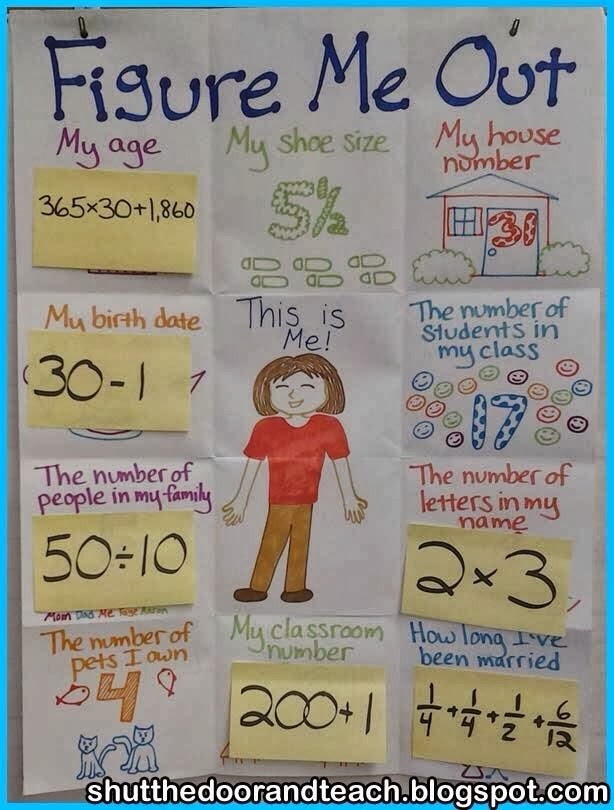 Figure Me Out
My age
365×30+1,860
My shoe size
5½
My house
number
31
My birth date
30-1
This is
Me!
The number of
students in
my class
17
The number of
people in my family
50÷10
Mom Dad Me Taye Aaron
The number of
letters in my
name
2×3
The number of
pets I own
4
My classroom
number
200+1
How long I've
been married
1/4+1/4+1/2+6/12
shutthedoorandteach.blogspot.com